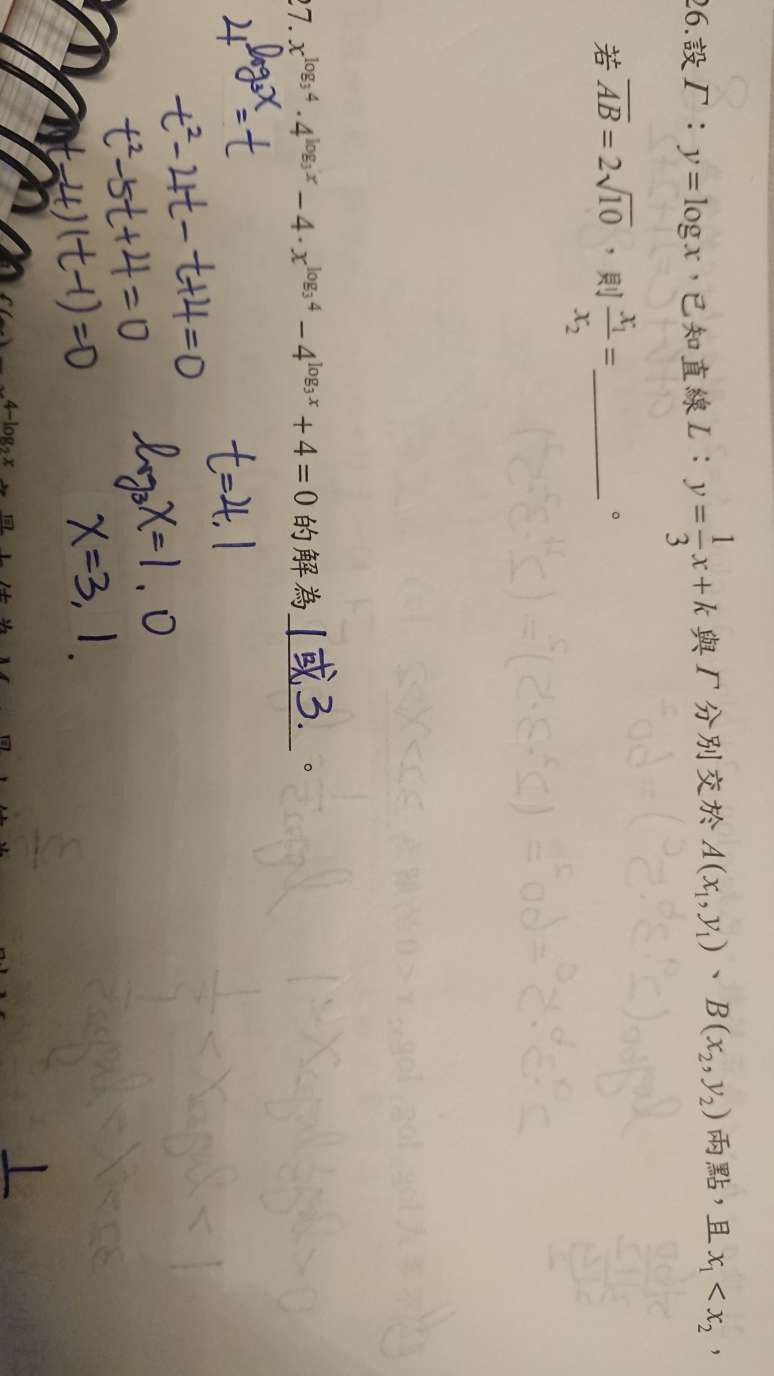 26. 設 Γ：y = log x，已知直線 L：y = 1/3 x + k 與 Γ 分別交於 A(x₁, y₁)、B(x₂, y₂) 兩點，且 x₁ < x₂，
若 \overline{AB} = 2√10，則 x₁/x₂ = ________。
27. x^{log₃4} · 4^{log₃x} − 4 · x^{log₃4} − 4^{log₃x} + 4 = 0 的解為 1或3. 。
4^{log₃x} = t
t² − 4t − t + 4 = 0
t² − 5t + 4 = 0
t−4)(t−1) = 0
t = 4, 1
log₃x = 1, 0
x = 3, 1.